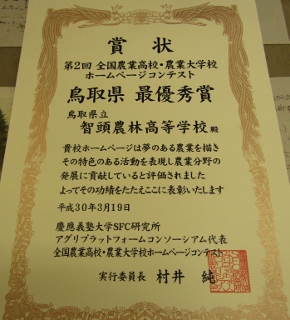 賞状
第2回 全国農業高校・農業大学校
ホームページコンテスト
鳥取県 最優秀賞
鳥取県立
智頭農林高等学校 殿
貴校ホームページは夢のある農業を描き
その特色のある活動を表現し農業分野の
発展に貢献していると評価されました
よってその功績をたたえここに表彰いたします
平成30年3月19日
慶應義塾大学SFC研究所
アグリプラットフォームコンソーシアム代表
全国農業高校・農業大学校ホームページコンテスト
実行委員長 村井 純